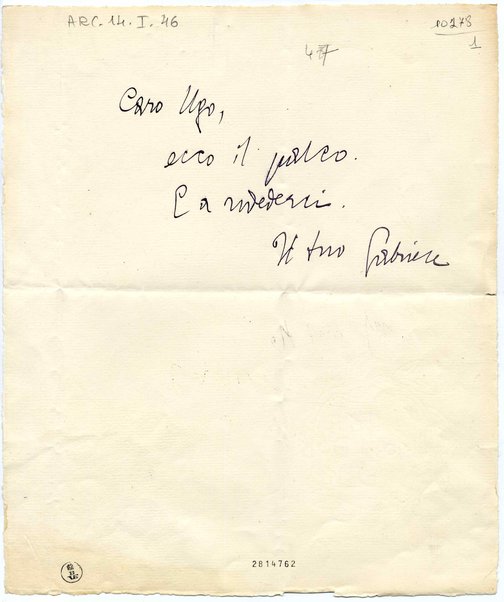 ARC. 14. I. 46
10278
1
47
Caro Ugo,
ecco il palco.
E a rivederci.
Il tuo Gabriele
2814762